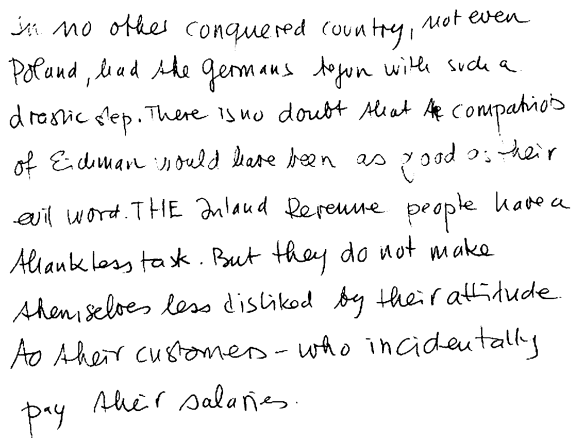 in no other conquered country, not even
Poland, had the Germans begun with such a
drastic step. There is no doubt that the compatriots
of Eichman would have been as good as their
evil word. THE Inland Revenue people have a
thankless task. But they do not make
themselves less disliked by their attitude
to their customers - who incidentally
pay their salaries.